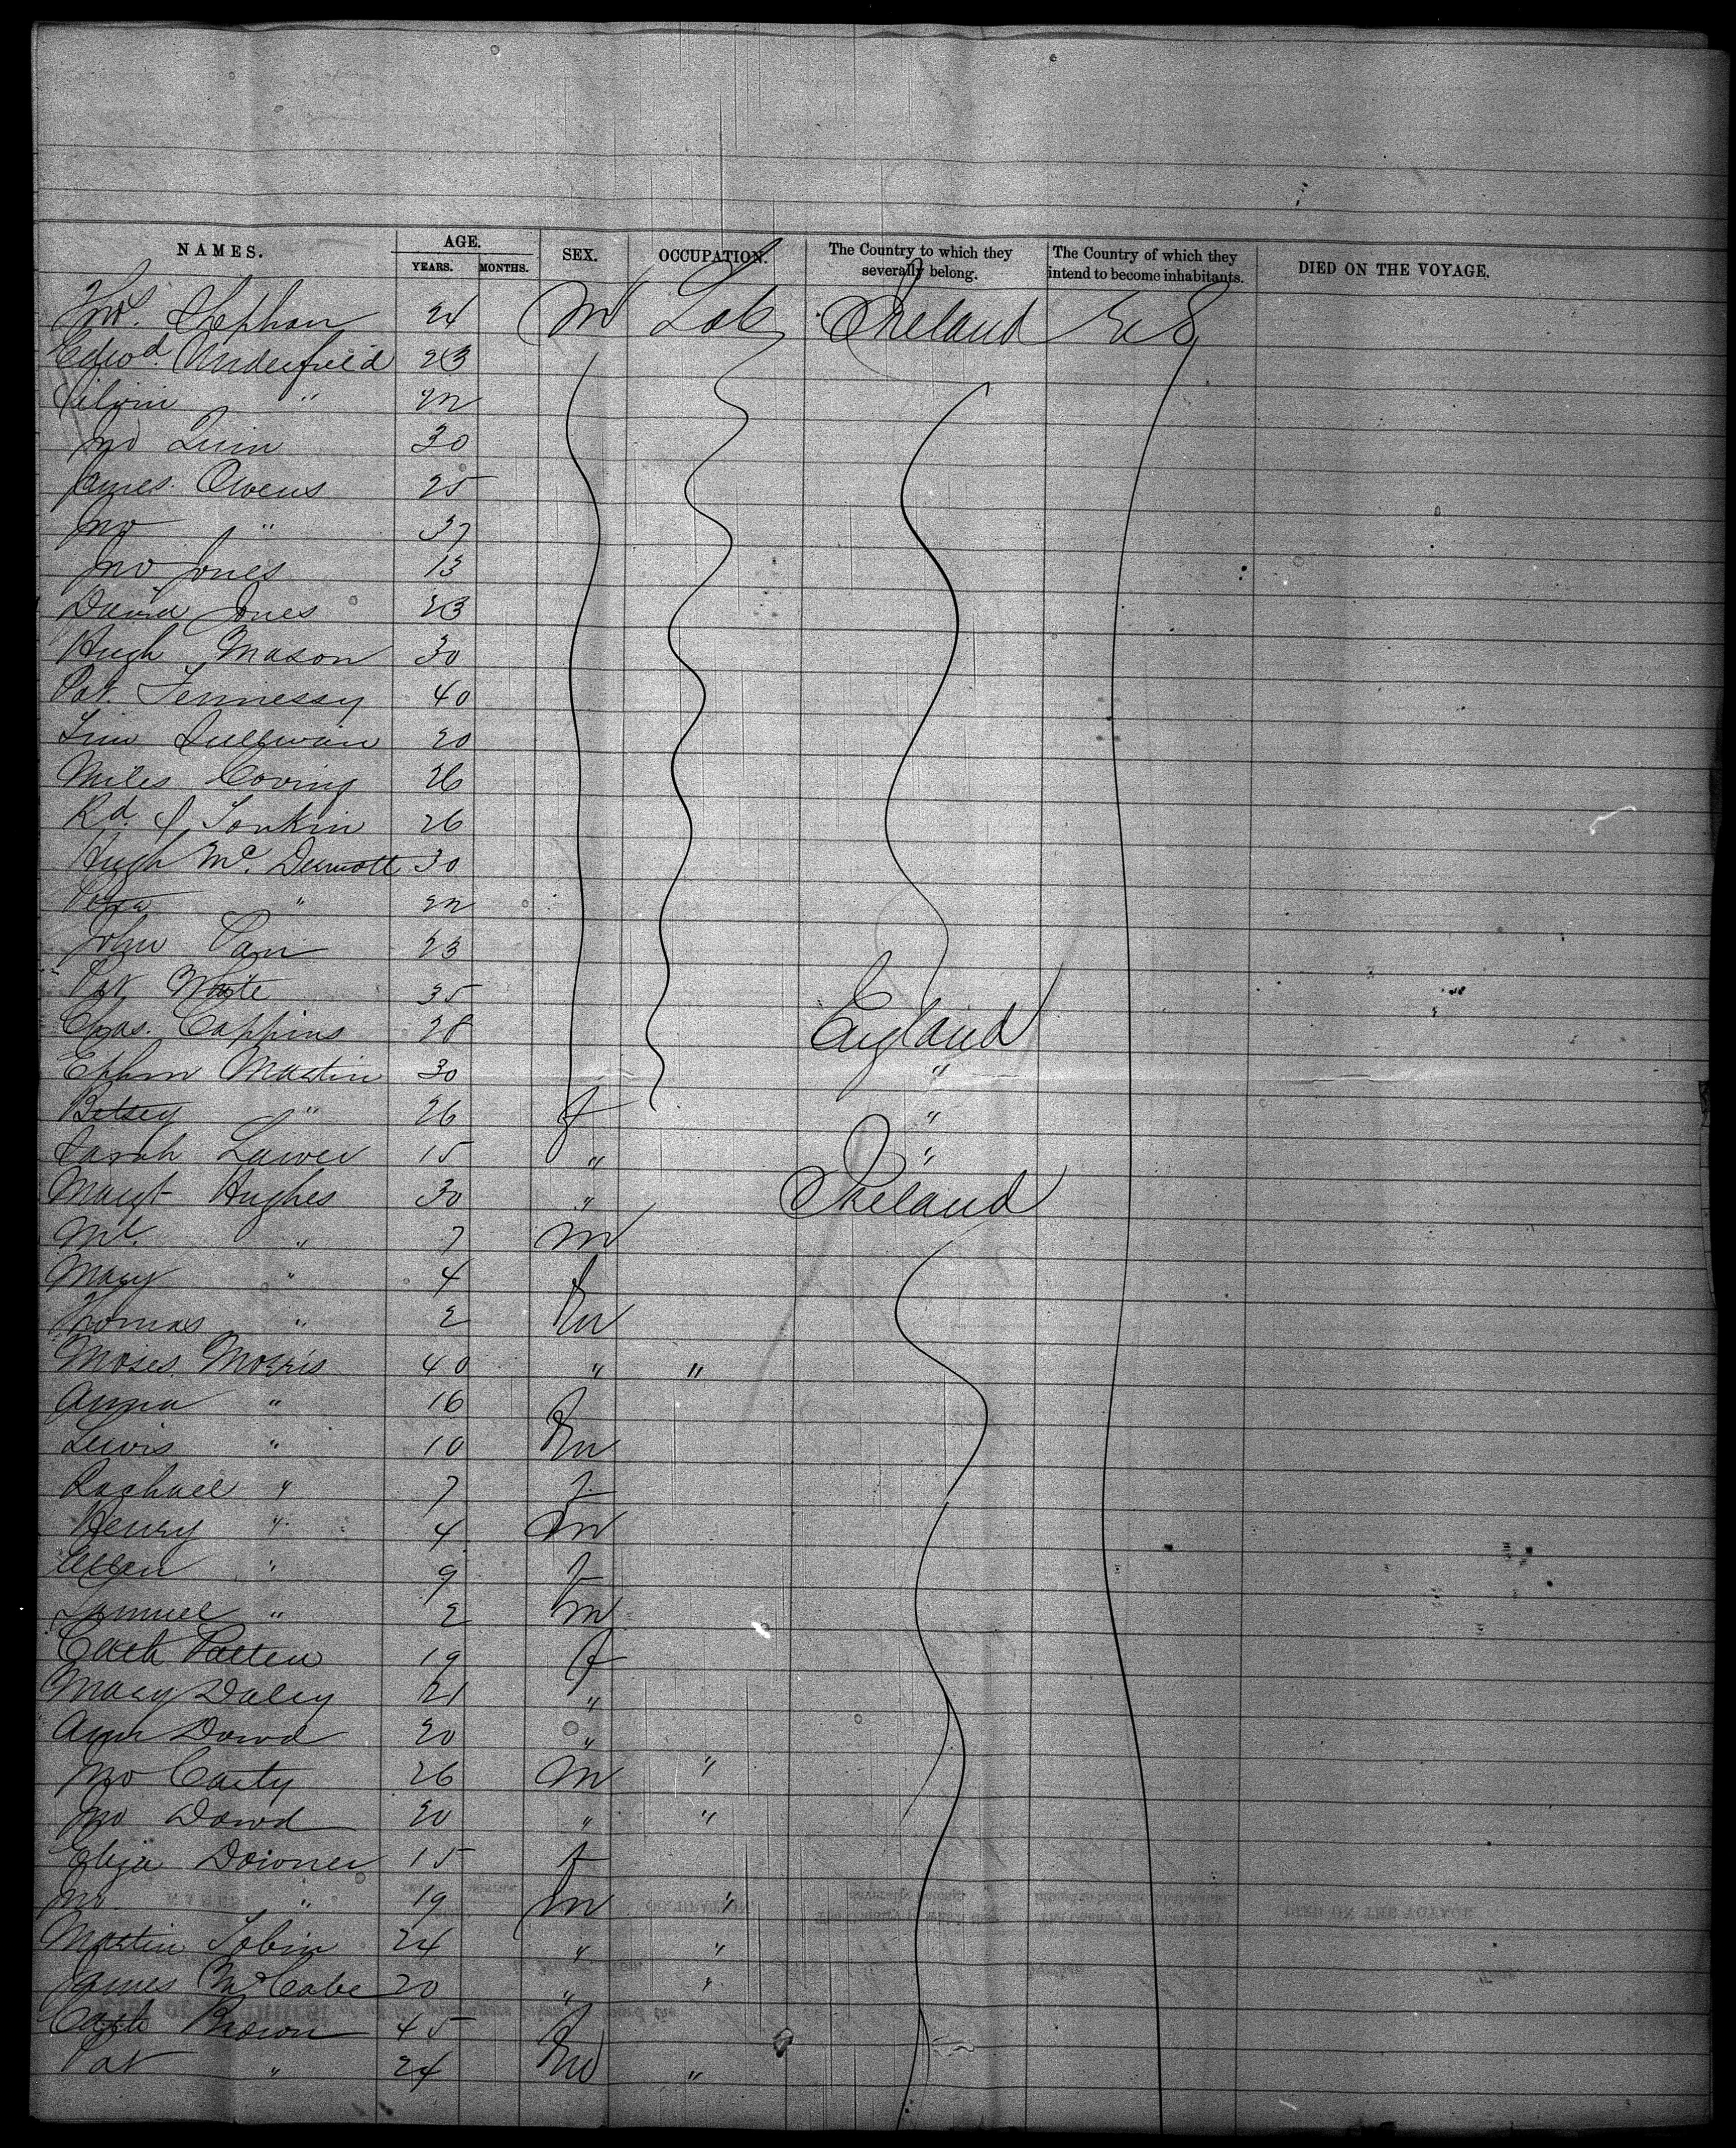 NAMES. AGE. YEARS. MONTHS. SEX. OCCUPATION. The Country to which they severally belong. The Country of which they intend to become inhabitants. DIED ON THE VOYAGE.
24 M Lab Ireland U S
Edwd. Underfield 23
" 22
Jno Quin 30
James Owens 25
Jno " 37
Jno Jones 13
David Jones 23
Hugh Mason 30
Pat. Fennessy 40
Tim Sullivan 20
Miles Coving 26
Rd. J Tonkin 26
Hugh Mc. Dermott 30
" 22
John Carr 23
Pat White 35
Chas. Cappins 28 England
Ephm Martin 30 "
Betsey " 26 f "
Sarah Lawer 15 " "
Margt Hughes 30 " Ireland
Ml. " 7 M
Mary " 4 f
Thomas " 2 m
Moses Morris 40 " "
Anna " 16 f
Lewis " 10 m
Raphael " 7 f
Henry " 4 m
" 9 f
Samuel " 2 m
Cath Patten 19 f
Mary Daley 21 "
Ann Dowd 20 "
Jno Carty 26 M "
Jno Dowd 20 " "
Eliza Downer 15 f
Jno " 19 m "
Martin Tobin 24 " "
James McCabe 20 " "
Cath Brown 45 f
Pat " 24 m "